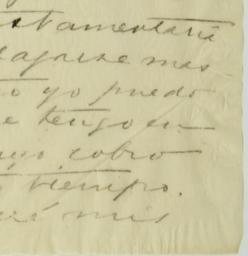 stamentaria
agarse mas
to yo puedo
e tengo en
uyo cobro
tiempo.
mis